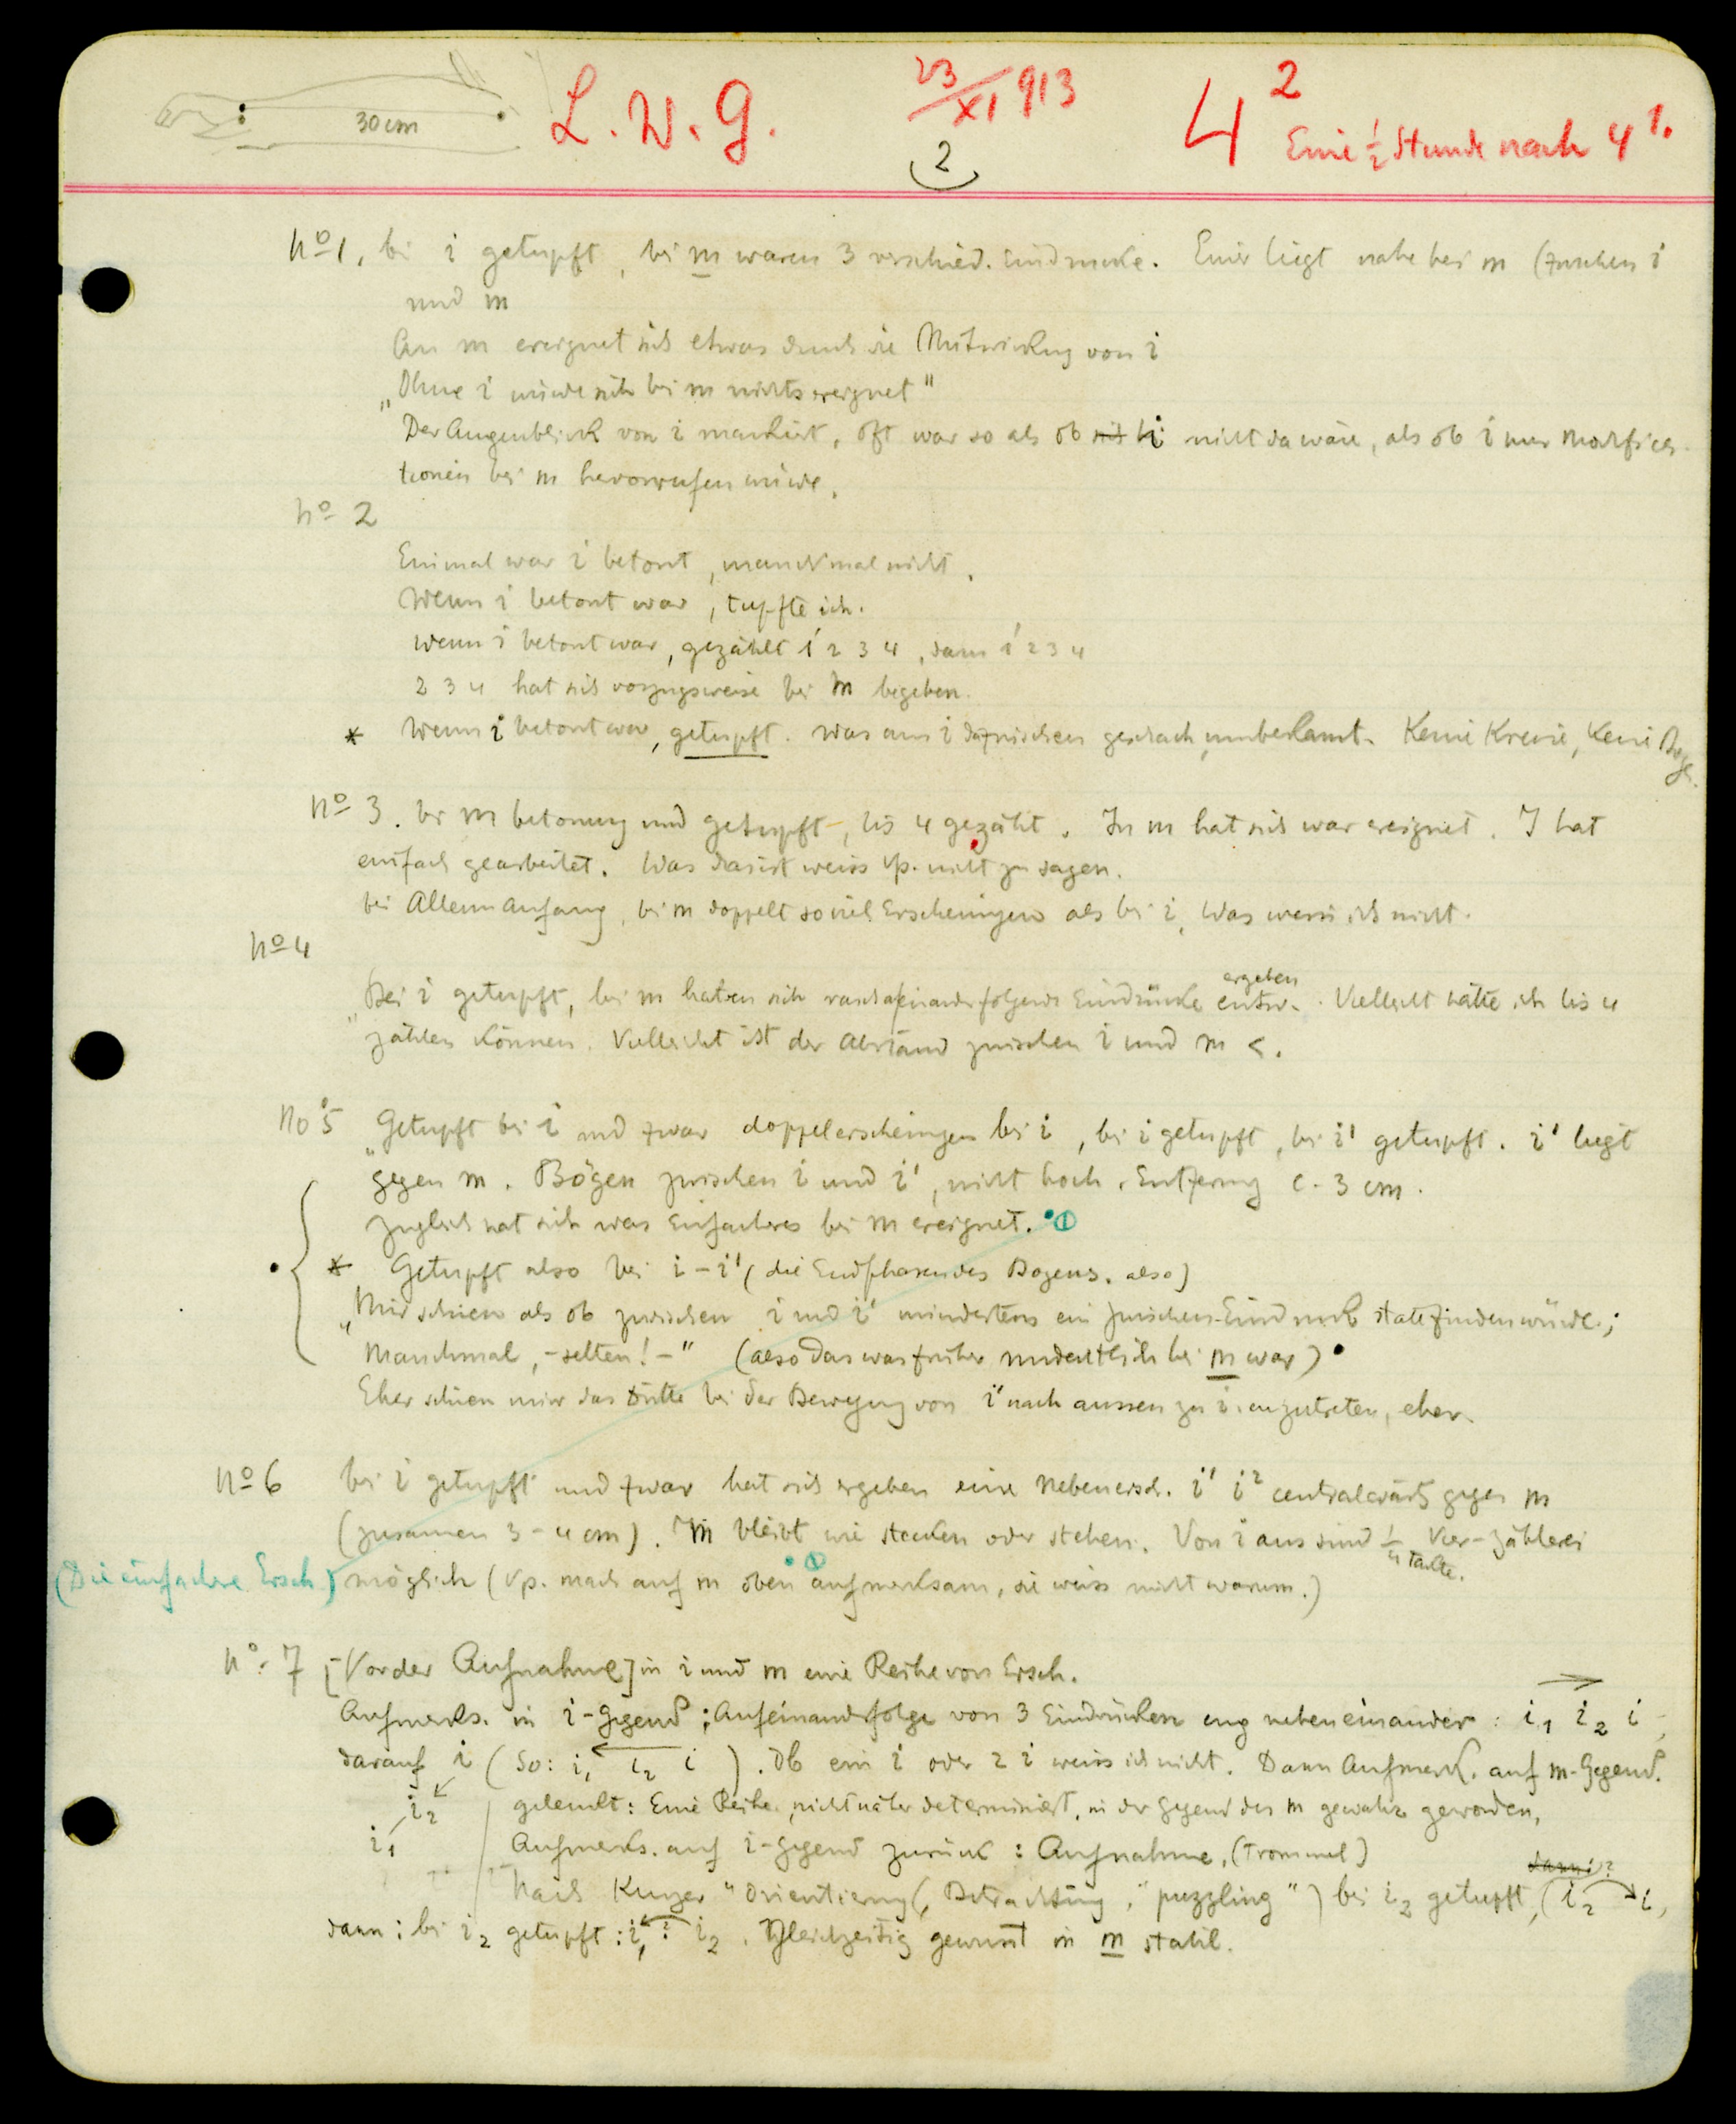 30 cm
L. W. G.
23/XI 913
2
4²
Eine ½ Stunde nach 4¹.
No 1, bei i getupft, bei m waren 3 verschied. Eindrucke. Einer liegt nahe bei m (zwischen i
und m
An m ereignet sich etwas durch die Mitwirkung von i
„Ohne i würde sich bei m nichts ereignet"
Der Augenblick von i markiert, oft war so als ob i nicht da wäre, als ob i nur Modifica-
tionen bei m hervorrufen würde.
No 2
Einmal war i betont, manchmal nicht.
Wenn i betont war, tupfte ich.
Wenn i betont war, gezählt 1́ 2 3 4, dann 1́ 2 3 4
2 3 4 hat sich vorzugsweise bei m begeben.
* Wenn i betont war, getupft. Was aus i dazwischen geschach, unbekannt. Keine Kreise, keine Boge.
No 3. bei m betonung und getupft, bis 4 gezählt. In m hat sich was ereignet. I hat
einfach gearbeitet. Was das ist weiss Vp. nicht zu sagen.
bei Allem Anfang, bei m doppelt soviel Erscheinungen als bei i, Was weiss ich nicht.
No 4
„Bei i getupft, bei m haben sich raschaufeinanderfolgende Eindrücke entw. ergeben. Vielleicht hätte ich bis 4
zählen können. Vielleicht ist der Abstand zwischen i und m <.
No 5 „Getupft bei i und zwar doppelerscheinungen bei i, bei i getupft, bei i' getupft. i' liegt
gegen m. Bögen zwischen i und i', nicht hoch. Entfernung c. 3 cm.
Zugleich hat sich was Einfacheres bei m ereignet. ①
* Getupft also bei i – i' (die Endphasen des Bogens. also)
„Mir schien als ob zwischen i und i' mindestens ein zwischen-Eindruck stattfinden würde.;
Manchmal, – selten! –" (also das was früher undeutlich bei m war)
Eher schien mir das Dritte bei der Bewegung von i' nach aussen zu i. anzutreten, eher.
No 6 bei i getupft und zwar hat sich ergeben eine Nebenersch. i' i² centralwärts gegen m
(zusamen 3 – 4 cm). M bleibt wie stecken oder stehen. Von i aus sind ¼ Vier-zählerei
takte.
(Die einfachere Ersch.) möglich (Vp. mach auf m oben ① aufmerksam, sie weiss nicht warum.)
No. 7 [Vor der Aufnahme] in i und m eine Reihe von Ersch.
Aufmerks. in i-Gegend; Aufeinanderfolge von 3 Eindrücken eng nebeneinander: i₁ i₂ i,
darauf i (So: i₁ i₂ i). Ob ein i oder 2 i weiss ich nicht. Dann Aufmerk. auf m-Gegend.
i₂ gelenkt: Eine Reihe, nicht näher determiniert, in der Gegend des m gewahr geworden,
i₁ Aufmerks. auf i-Gegend zurück: Aufnahme, (Trommel)
Nach Kurzer "Orientierung (, Betrachtung, "puzzling") bei i₂ getupft, (i₂ i,
dann: bei i₂ getupft: i₁ ? i₂. Gleichzeitig gewusst in m stabil.